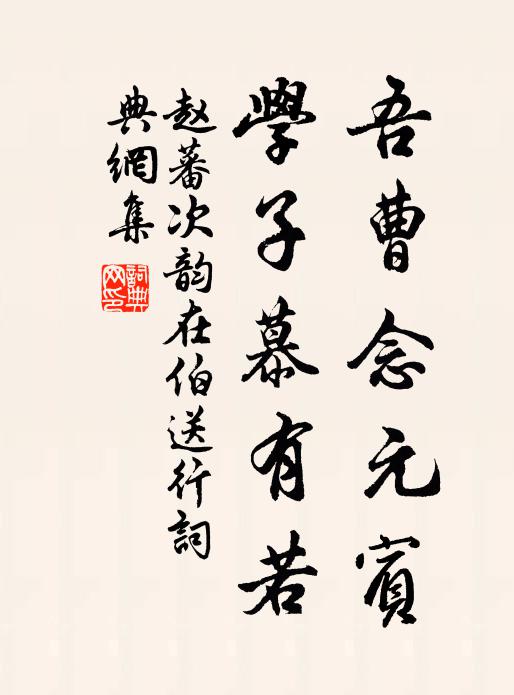 吾曹念元賓
學子慕有若
赵蕃次韵在伯送行詞
典網集
詞典网印